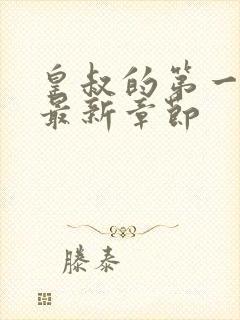 皇叔的第一
最新章节
滕泰